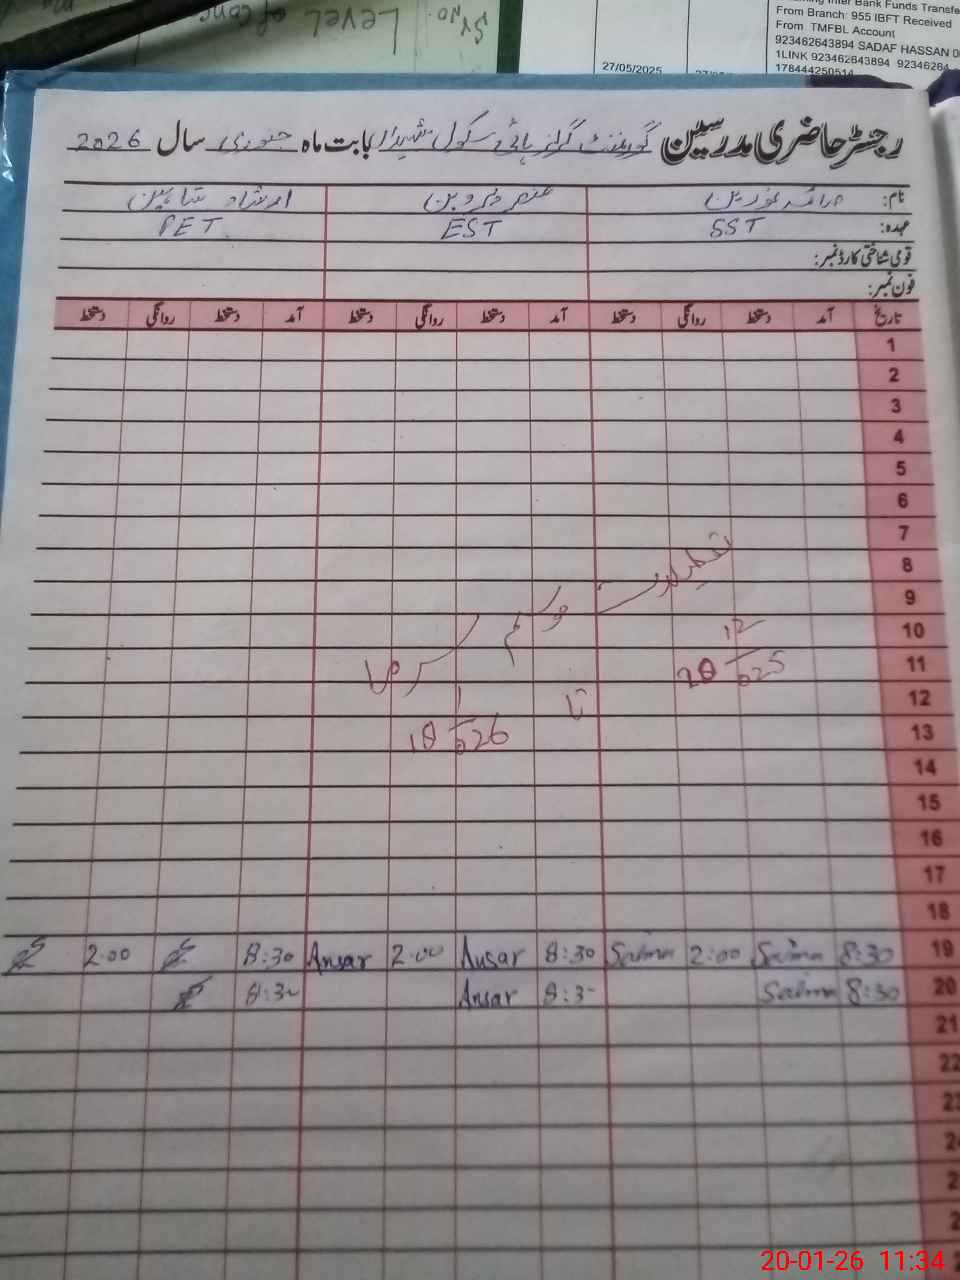 Sr No.
Level of Conc
Inter Bank Funds Transfe
From Branch: 955 IBFT Received
From TMFBL Account
923462643894 SADAF HASSAN 0
1LINK 923462643894 92346264
178444250514
27/05/2025
رجسٹر حاضری مدرسین گورنمنٹ گرلز ہائی سکول بابت ماہ جنوری سال 2026
نام: نورین عنصر پروین ارشاد شاہین
عہدہ: SST EST PET
قومی شناختی کارڈ نمبر:
فون نمبر:
تاریخ آمد دستخط روانگی دستخط آمد دستخط روانگی دستخط آمد دستخط روانگی دستخط
1
2
3
4
5
6
7
8
9
10
11
12
13
14
15
16
17
18
تعطیلات موسم سرما
20 12 2025 تا 18 1 2026
19 8:30 Saima 2:00 Saima 8:30 Ansar 2:00 Ansar 8:30 2:00
20 8:30 Saima 8:3- Ansar 8:3-
21
22
23
20-01-26 11:34